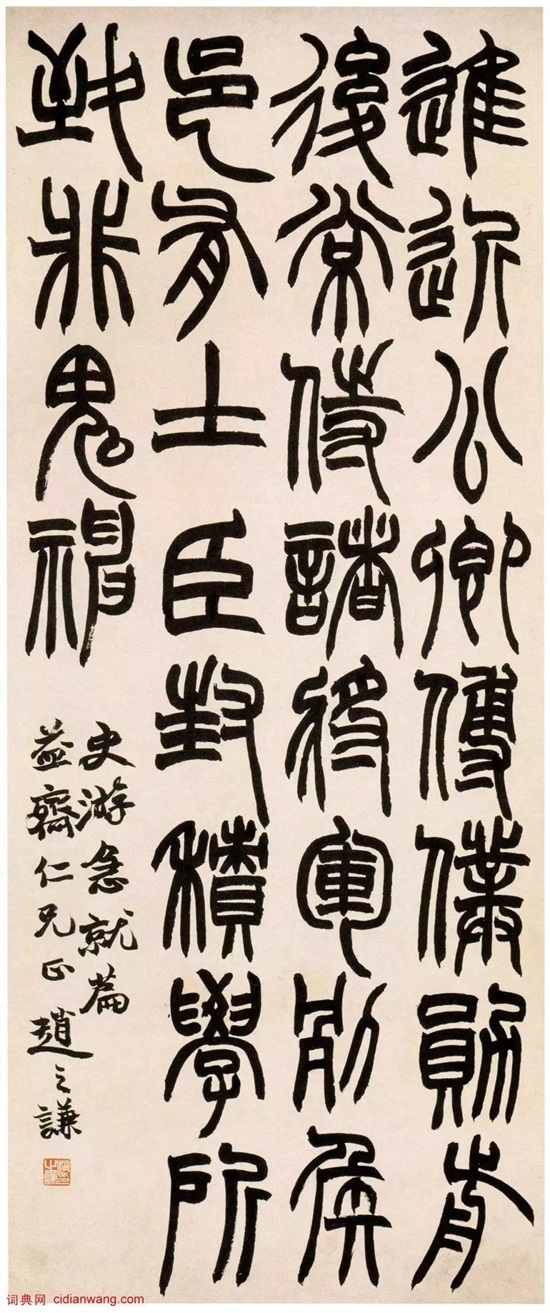 進近公卿傅僕勛前
後常侍諸將軍列侯
邑有土臣封積學所
致非鬼神
史游急就篇
益齋仁兄正 趙之謙
词典网 cidianwang.com